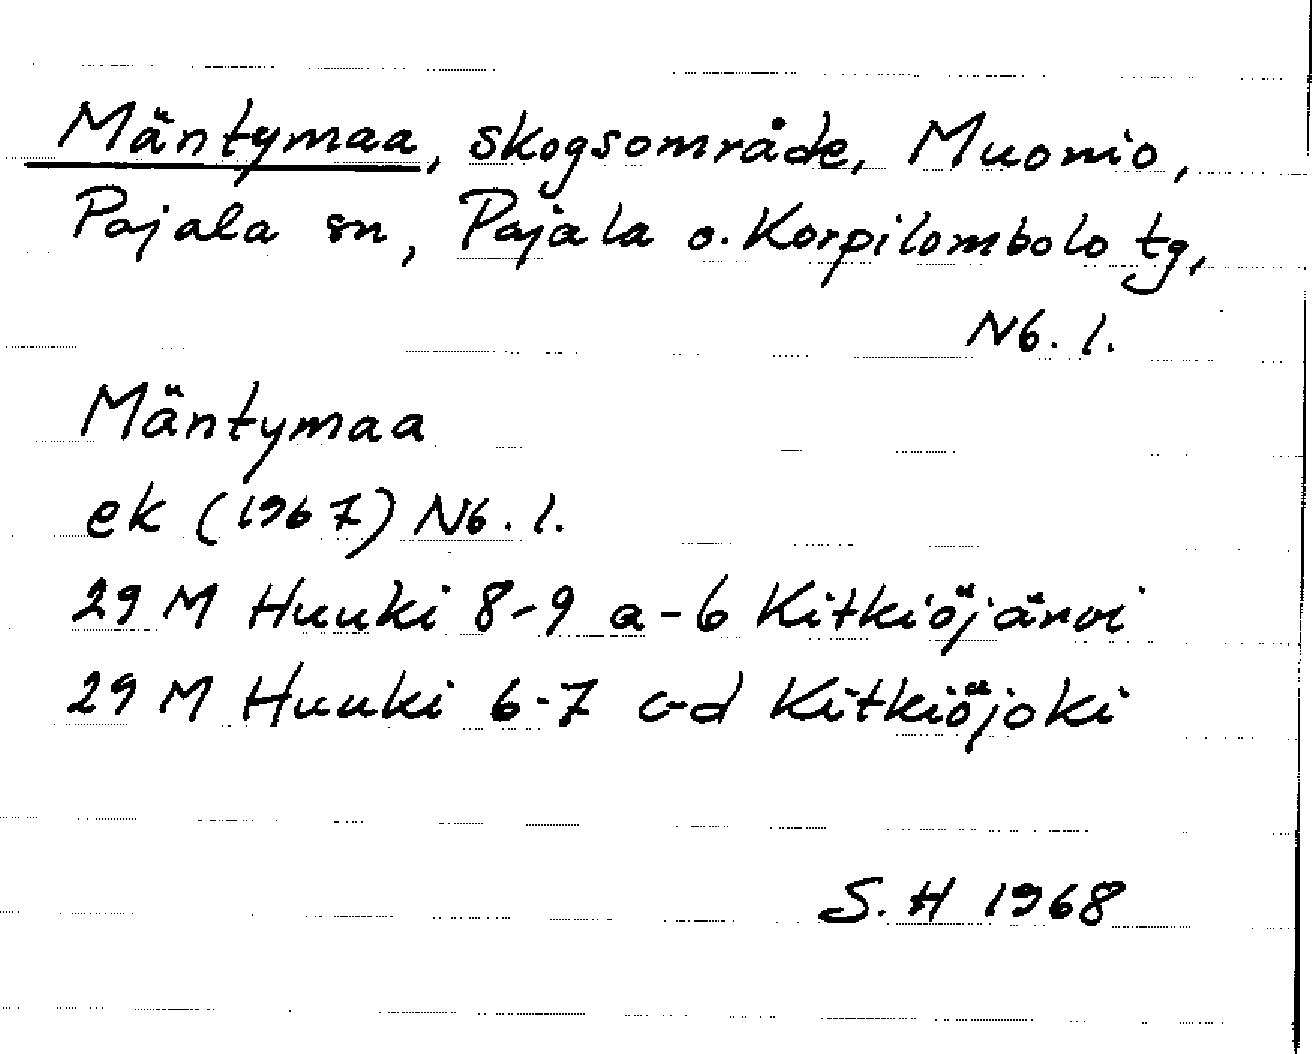 Mäntymaa, skogsområde, Muonio,
Pajala sn, Pajala o. Korpilombolo tg,
Nb. l.
Mäntymaa
ek (1967) Nb. l.
29 M Huuki 8-9 a-b Kitkiöjärvi
29 M Huuki 6-7 c-d Kitkiöjoki
S. H 1968